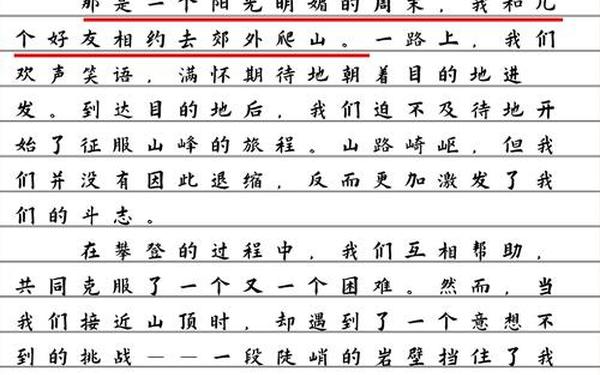 那是一个阳光明媚的周末，我和几
个好友相约去郊外爬山。一路上，我们
欢声笑语，满怀期待地朝着目的地进
发。到达目的地后，我们迫不及待地开
始了征服山峰的旅程。山路崎岖，但我
们并没有因此退缩，反而更加激发了我
们的斗志。
在攀登的过程中，我们互相帮助，
共同克服了一个又一个困难。然而，当
我们接近山顶时，却遇到了一个意想不
到的挑战——一段陡峭的岩壁挡住了我